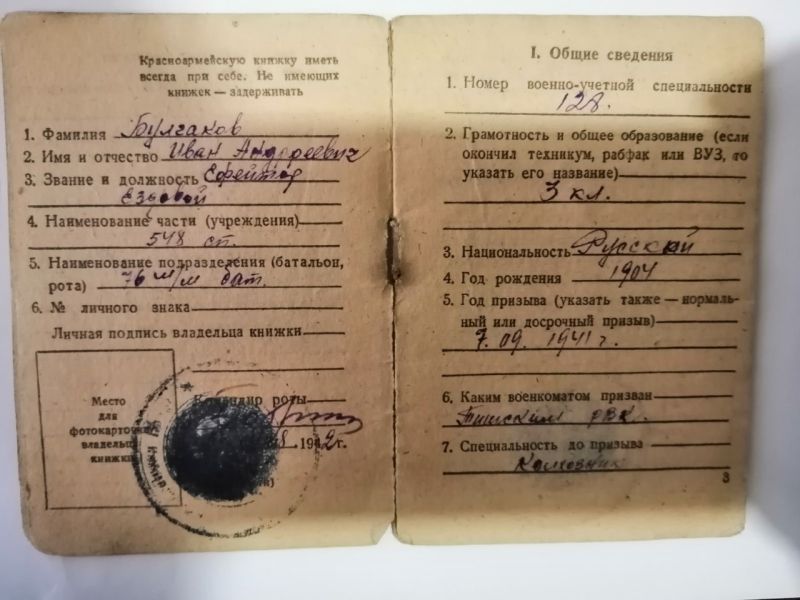 Красноармейскую книжку иметь
всегда при себе. Не имеющих
книжек — задерживать
1. Фамилия Булгаков
2. Имя и отчество Иван Андореевич
3. Звание и должность Ефрейтор
Ездовой
4. Наименование части (учреждения)
548 сп.
5. Наименование подразделения (батальон,
рота) 76 м/м бат.
6. № личного знака
Личная подпись владельца книжки
Место
для
фотокарточки
владельца
книжки
Командир роты
1942 г.
I. Общие сведения
1. Номер военно-учетной специальности
128.
2. Грамотность и общее образование (если
окончил техникум, рабфак или ВУЗ, то
указать его название)
3 кл.
3. Национальность Русский
4. Год рождения 1904
5. Год призыва (указать также — нормаль-
ный или досрочный призыв)
7.09.1941 г.
6. Каким военкоматом призван
РВК.
7. Специальность до призыва
Колхозник
3